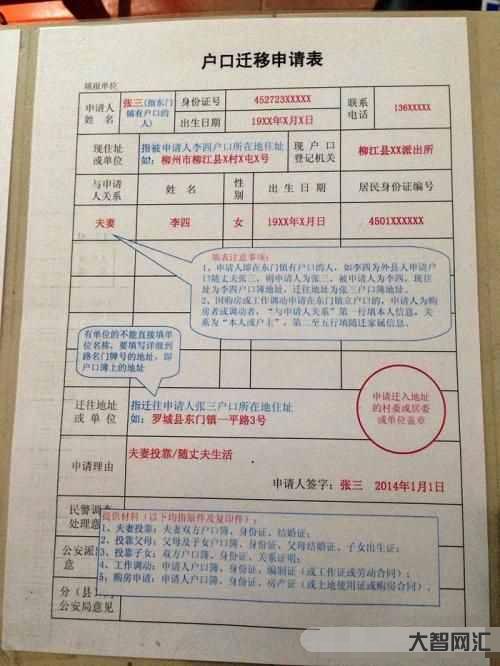 户口迁移申请表
填报单位
申请人
姓 名
张三(指东门
镇有户口的
人)
身份证号
452723XXXXX
出生日期
19XX年X月X日
联系
电话
136XXXXX
现住址
或单位
指被申请人李四户口所在地住址
如:柳州市柳江县X村X屯X号
现 户 口
登记机关
柳江县XX派出所
与申请
人关系
姓 名
性
别
出 生 日 期
居民身份证编号
夫妻
李四
女
19XX年X月X日
4501XXXXXX
填表注意事项:
1、申请人即在东门镇有户口的人,如李四为外县人申请户
口随丈夫张三,则申请人为张三,被申请人为李四,现住址
为李四户口簿地址,迁往地址为张三户口簿地址。
2、因购房或工作调动申请在东门镇立户口的,申请人为购
房者或调动者,“与申请人关系”第一行填本人信息,关
系为“本人或户主”,第二至五行填随迁家属信息。
有单位的不能直接填单
位名称,要填写详细到
路名门牌号的地址,即
户口簿上的地址
迁往地址
或 单 位
指迁往申请人张三户口所在地住址
如:罗城县东门镇一平路3号
申请迁入地址
的村委或居委
或单位盖章
申请理由
夫妻投靠/随丈夫生活
申请人签字:张三 2014年1月1日
民警调查
处理意
提供材料(以下均指原件及复印件):
1、夫妻投靠:夫妻双方户口簿、身份证、结婚证;
2、投靠父母:父母及子女户口簿、身份证、父母结婚证、子女出生证;
3、投靠子女:双方户口簿、身份证、关系证明;
4、工作调动:申请人户口簿、身份证、编制证(或工作证或劳动合同);
5、购房申请:申请人户口簿、身份证、房产证(或土地使用证或购房合同)。
公安派
意
分(县
公安局意见
大智网汇